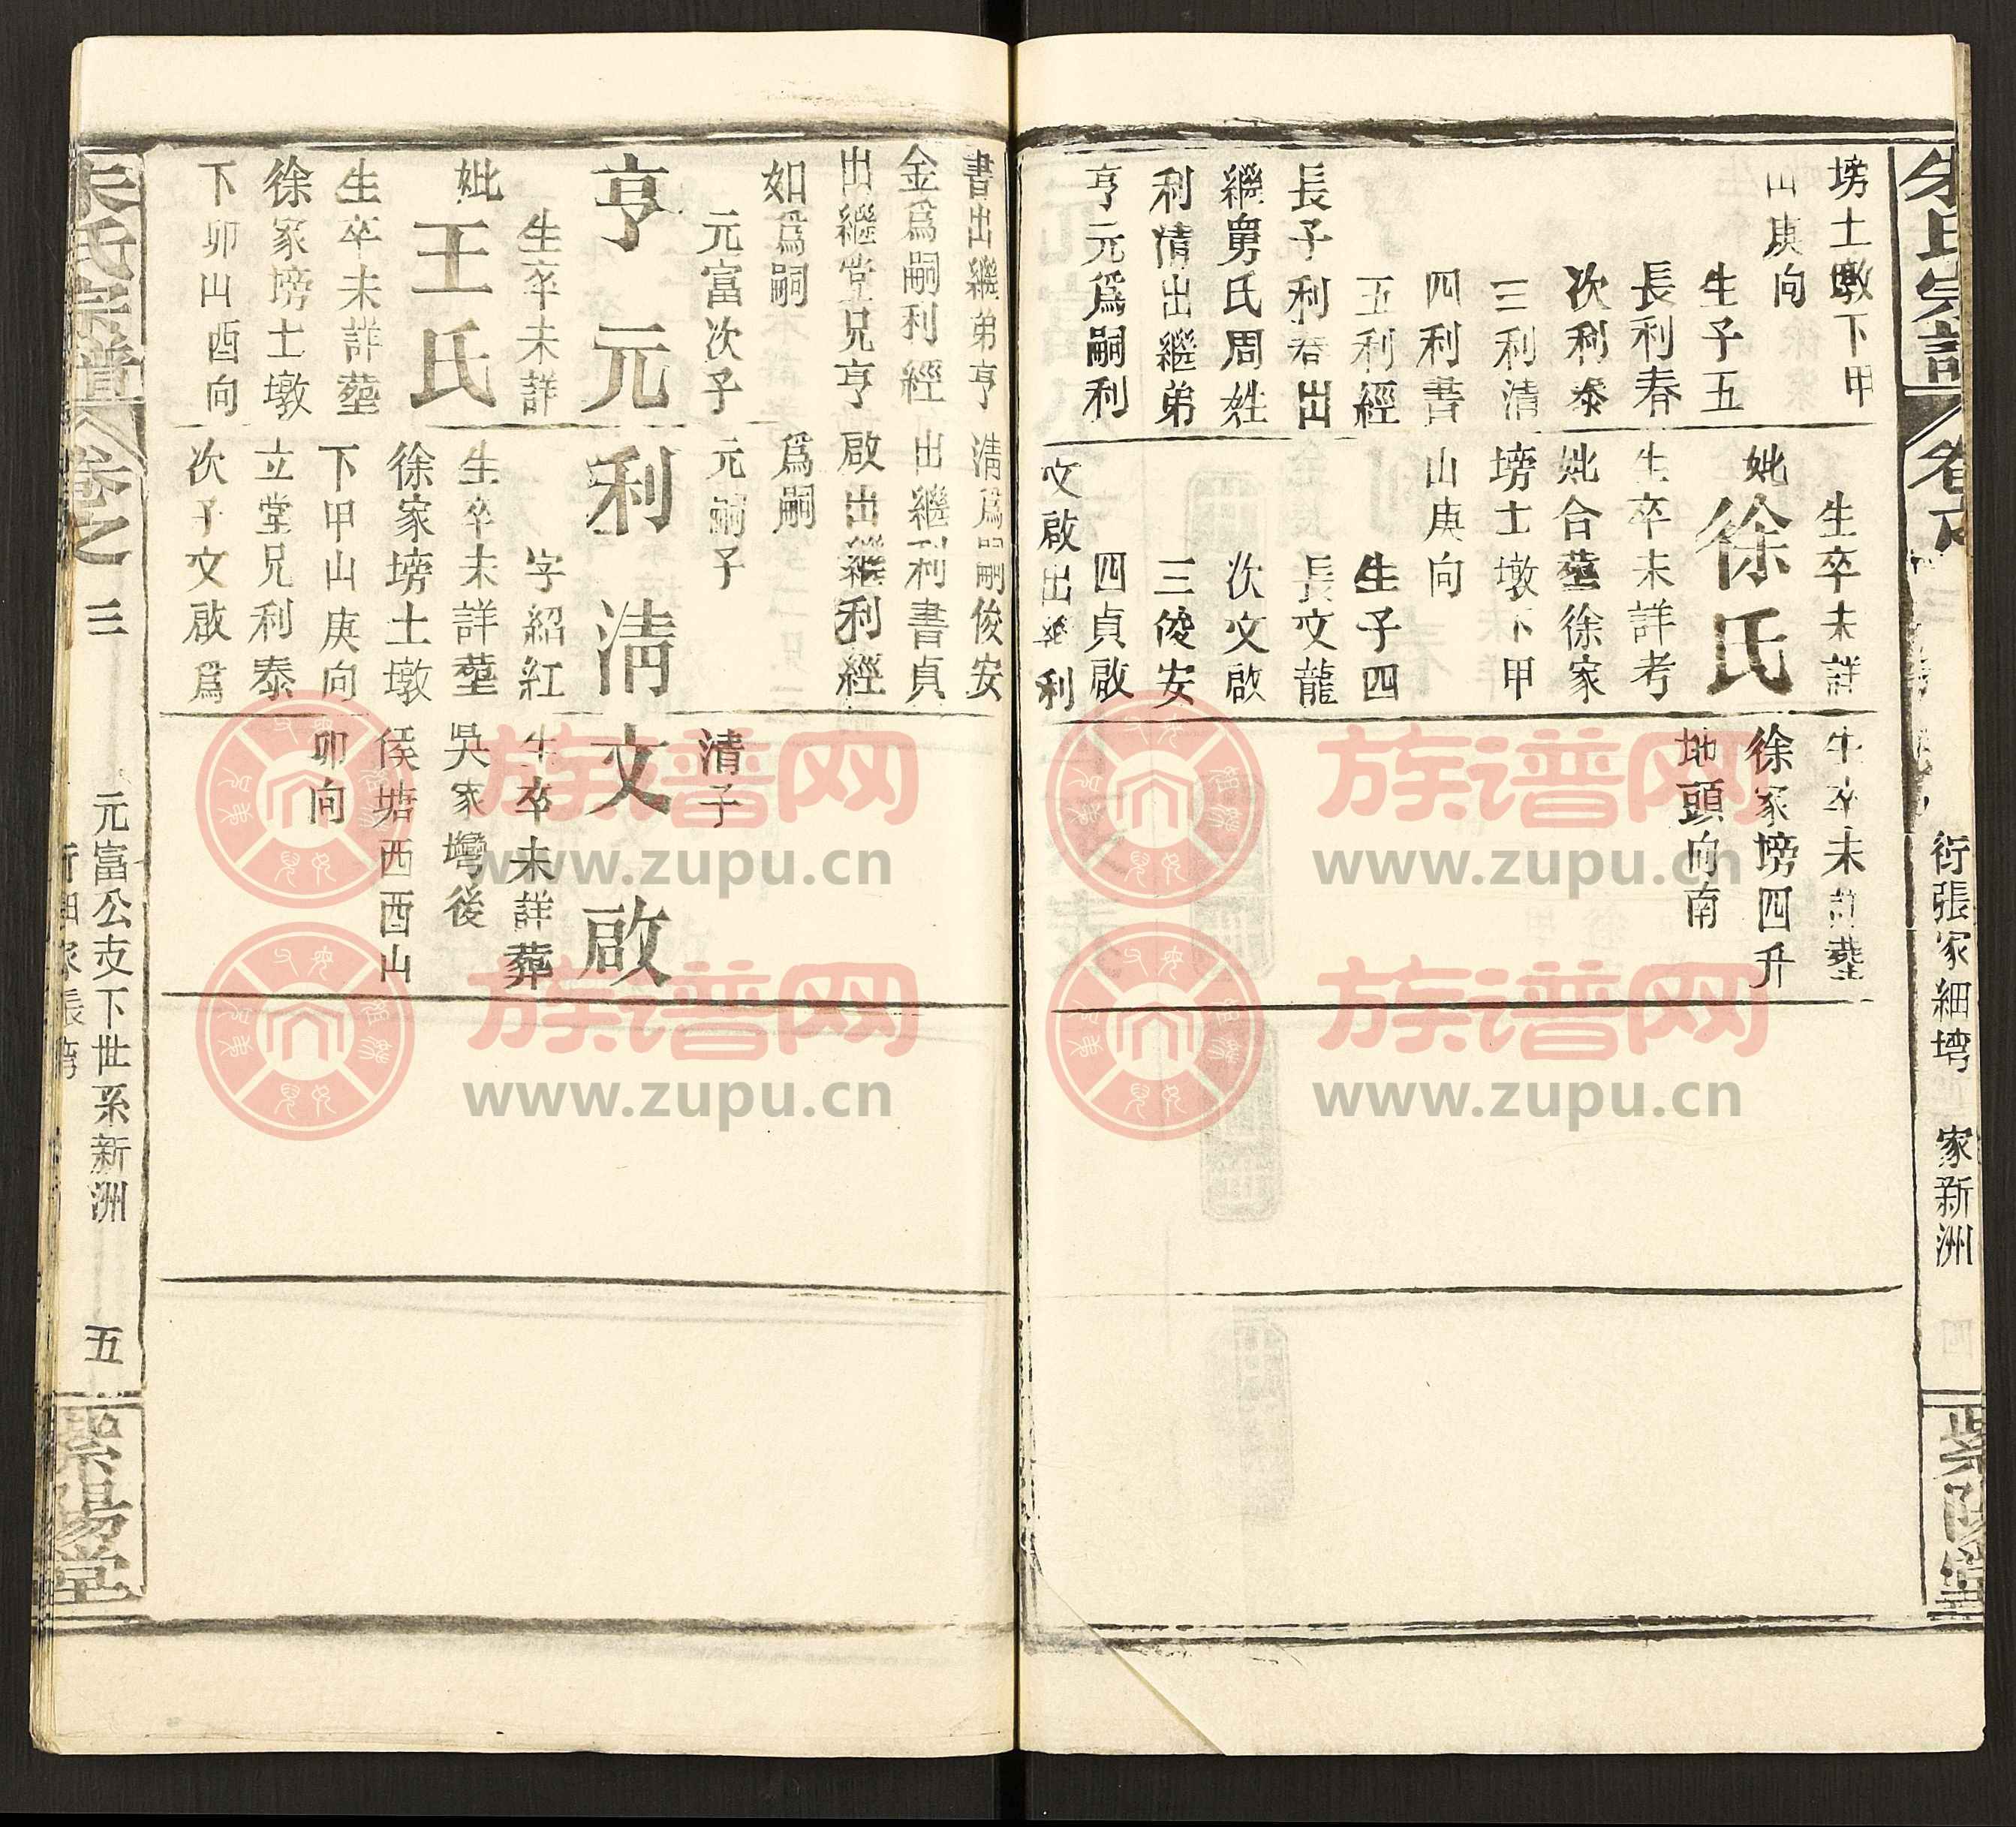 朱氏宗譜
衍張家細塆
家新洲
塝土墩下甲
山庚向
生子五
長利春
次利泰
三利清
四利書
五利經
長子利春出
繼舅氏周姓
利清出繼弟
亨元爲嗣利
生卒未詳
妣徐氏
生卒未詳考
妣合塟徐家
塝土墩下甲
山庚向
生子四
長文龍
次文啟
三俊安
四貞啟
文啟出繼利
生卒未詳塟
徐家塝四升
地頭向南
書出繼弟亨
金爲嗣利經
出繼堂兄亨
如爲嗣
元富次子
亨元
生卒未詳
妣王氏
生卒未詳塟
徐家塝土墩
下卯山酉向
清爲嗣俊安
出繼利書貞
啟出繼利經
爲嗣
元嗣子
利清
字紹紅
生卒未詳塟
徐家塝土墩
下甲山庚向
立堂兄利泰
次子文啟爲
清子
文啟
生卒未詳葬
吳家灣後
侯塘西酉山
卯向
朱氏宗譜
卷之三
元富公支下世系新洲
五
紫陽堂
族谱网
www.zupu.cn
族谱网
www.zupu.cn
族谱网
www.zupu.cn
族谱网
www.zupu.cn